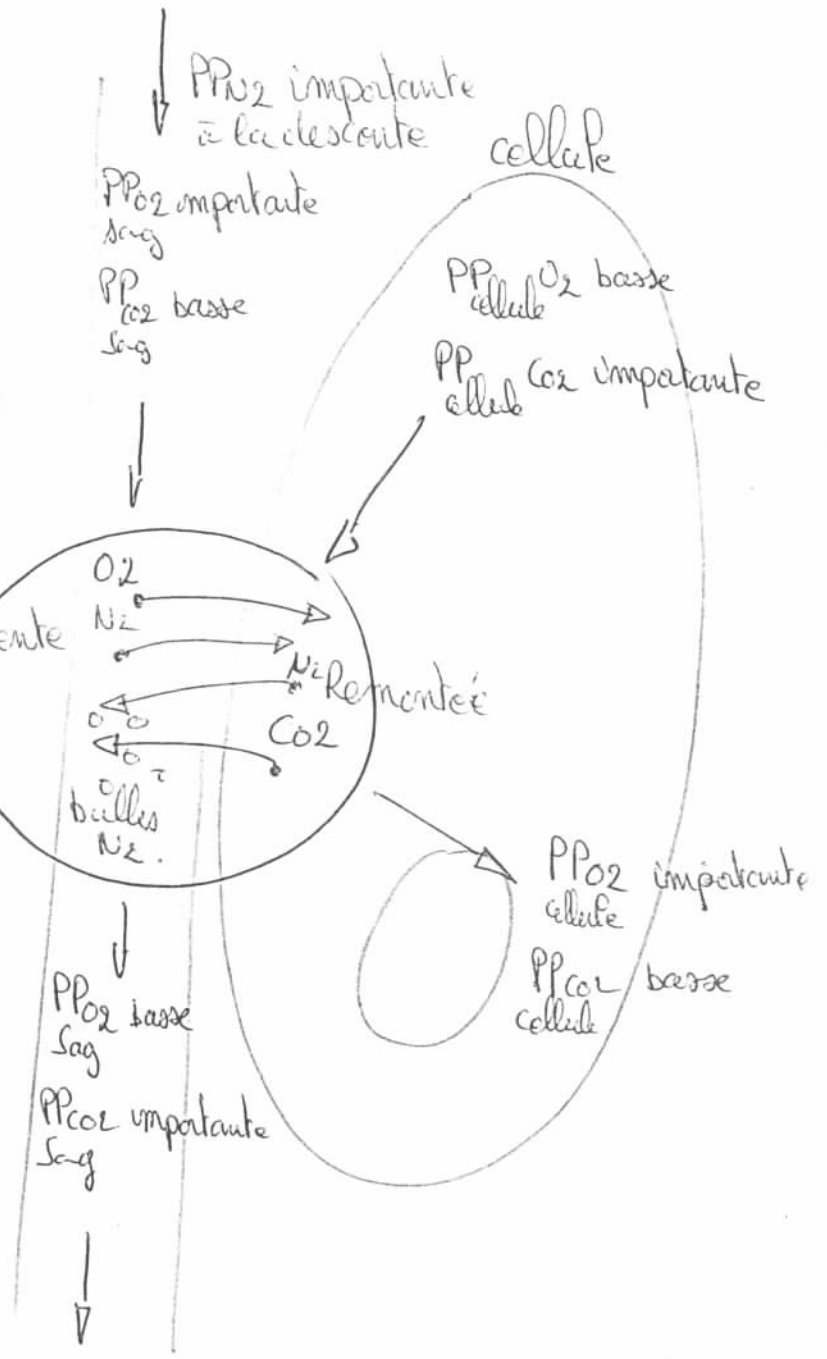 PPN2 importante
à la descente
cellule
PPO2 importante
sang
PPCO2 basse
sang
PP cellule O2 basse
PP cellule CO2 importante
O2
N2
ente
N2 Remontée
CO2
bulles
N2.
PPO2 importante
cellule
PPCO2 basse
cellule
PPO2 basse
Sang
PPCO2 importante
Sang